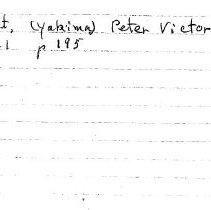 t, (Yakima) Peter Victor
l p 195